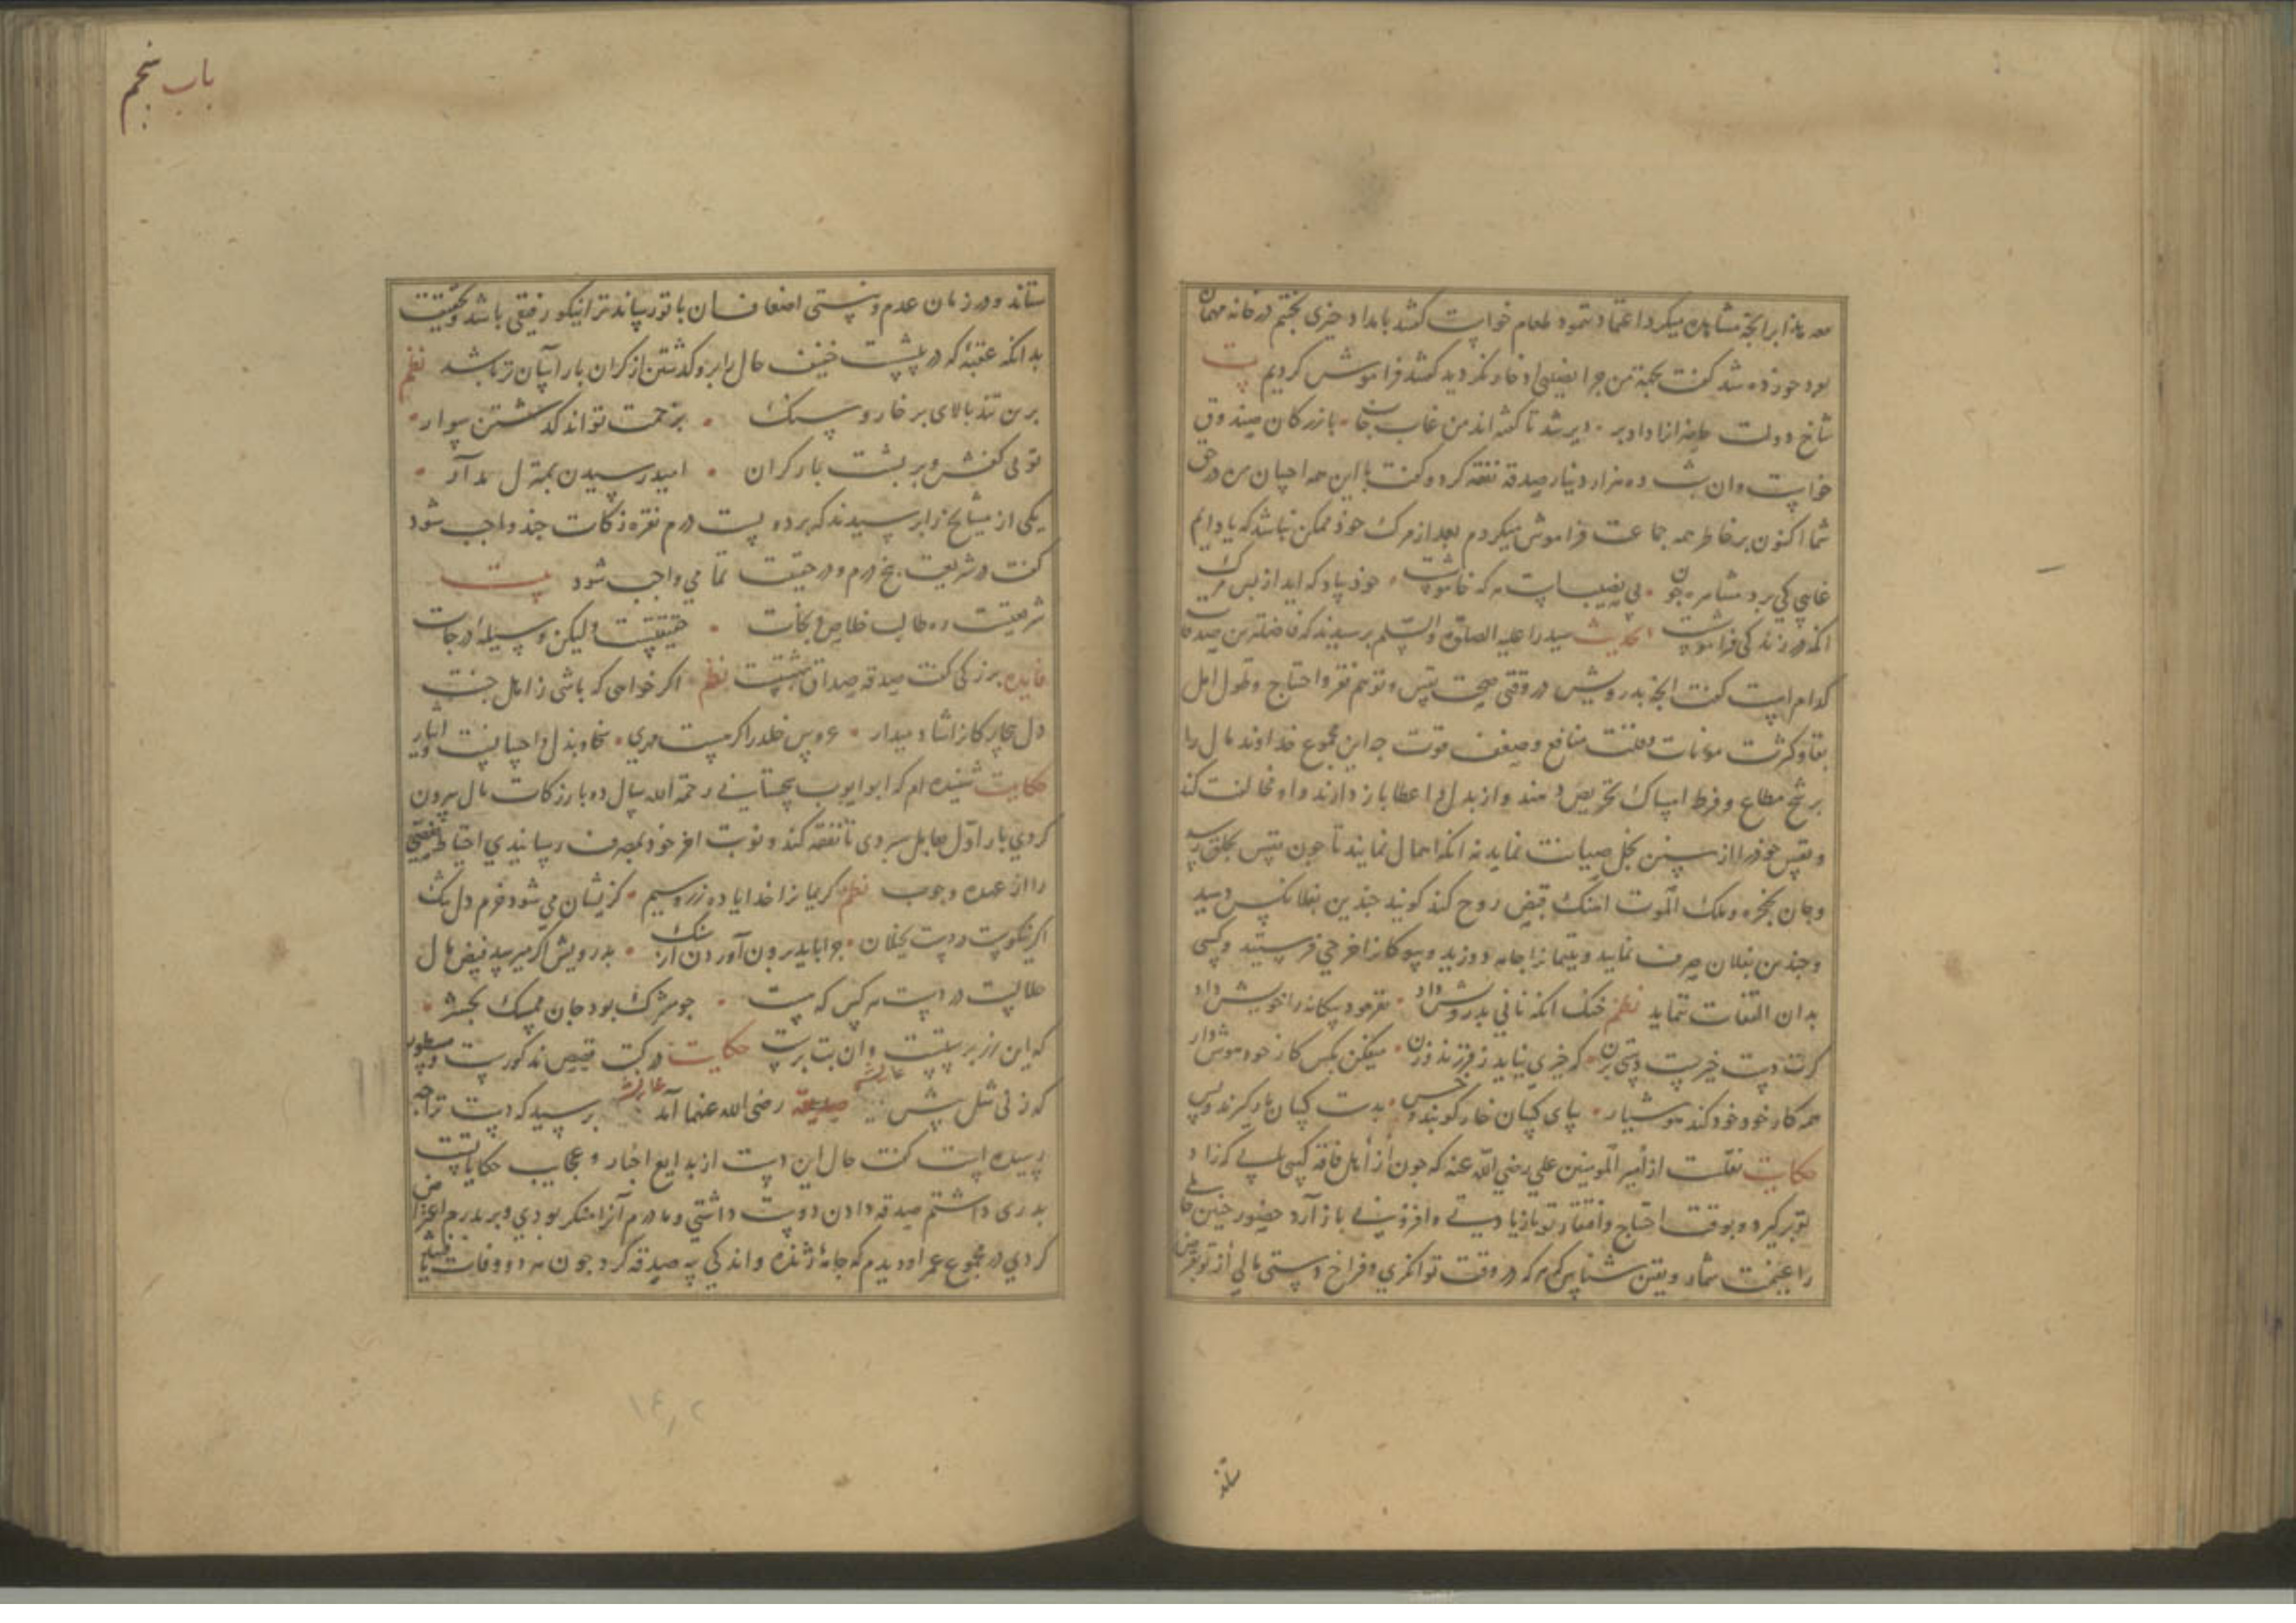 معده مشاهده میکرد اعتماد نمود طعام خواست گفتند بامداد چیزی پختیم در خانه مهمان
بود خورده شد گفت بجهة من چرا نصیبی ادخار نکردید گفتند فراموش کردیم بیت
شاخ دولت حاضرانرا داد بر دیر شد تا گفته‌اند من غاب خاب بازرگان صندوق
خواست و ان شب ده هزار دینار صدقه نفقه کرد و گفت با این همه احسان من در حق
شما اکنون بر خاطر همه جماعت فراموش میکردم بعد از مرک خود ممکن نباشد که یاد ایم
غایبی کی برد مشاهره چون بی نصیبست هر که خاموشست خود بیاد که اید از پس مرک
انکه در زندکی فراموشست حدیث سید را علیه الصلوة والسلم پرسیدند که فاضلترین صدقات
کدام است گفت انچه بدرویش در وقتی صحت نفس و توهم فقر و احتیاج و طول امل
بقا و کثرت مؤنات و قلت منافع و ضعف قوت چه این مجموع خداوند مال را
بر شح مطاع و فرط امساک تحریض دهند و از بذل و اعطا باز دارند و او مخالفت کند
و نفس خود را از بخل صیانت نماید نه انکه اهمال نمایند تا چون نفس بحلق رسد
و جان بحنجره و ملک الموت اهنک قبض روح کند کویند چندین بفلانکس دهید
و چندین بفلان صرف نماید و یتیمانرا جامه دوزید و بیوکانرا خرجی فرستید و کسی
بدان التفات ننماید نظم خنک انکه نانی بدرویش داد نفرمود بیکانه را خویش داد
کرت دست خیرست دستی بزن که خیری نیاید ز فرزند و زن میکن بکس کار خود هوش دار
همه کار خود خود کند هوشیار بپای کسان خار کوبند و خس بدست کسان مار کیرند و بس
حکایت نقلست از امیر المومنین علی رضی الله عنه که چون از اهل فاقه کسی یابی که زاد
تو برگیرد و بوقت احتیاج و افتقار تو بازیادتی و افزونی باز آرد حضور چنین حاملی
را غنیمت شمار و یقین شناس که هر که در وقت توانکری و فراخ دستی مالی از تو بقرض
ستاند
باب پنجم
ستاند و در زمان عدم و پستی اضعاف آن باتو رساند ترا نیکو رفیقی باشد و بحقیقت
بدانکه عقبهٔ که در پیشست خفیف حال را برو گذشتن از گران بار آسان‌تر باشد نظم
برین تند بالای بر خار و سنک بزحمت تواند کذشتن سوار
تو بی کفش و بر پشت بار کران امید رسیدن بمنزل مدار
یکی از مشایخ را پرسیدند که بر دویست درم نقره زکات چند واجب شود
گفت در شریعت پنج درم و در حقیقت تمامی واجب شود بیت
شریعت ره طالب خلاص و نجات حقیقتست ولیکن وسیله درجات
فایده بزرکی گفت صدقه صداق بهشتست نظم اگر خواهی که باشی ز اهل جنت
دل بیچارکانرا شاد میدار عروس خلد را کر میست مهری سخا و بذل و احسانست و ایثار
حکایت شنیده ام که ابو ایوب سجستانی رحمه الله سال ده بار زکات مال بیرون
کردی بار اول بعامل سپردی تا نفقه کند و نوبت اخر خود بمصرف رسانیدی احتیاط
را از عهده وجوب نظم کریمانرا خدایا ده زر و سیم کزیشان می شود خرم دل تنک
اگر نیکوست دست بخیلان چرا باید برون آوردن از سنک بدرویش اگر میرسد فیض مال
حلالست در دست هر کس که هست چو مشرک بود جان ممسک بحشر
که این زر پرستست و ان بت پرست حکایت در کتب قصص مذکورست و مسطور
که زنی شل پیش عایشه صدیقه رضی الله عنها آمد عایشه پرسید که دست ترا چه
رسیده است گفت حال این دست از بدایع اخبار و عجایب حکایاتست
پدری داشتم صدقه دادن دوست داشتی و مادرم آنرا منکر بودی و بر پدرم اعتراض
کردی در مجموع عمر او دیدم که جامهٔ ژنده و اندکی پیه صدقه کرد چون هر دو وفات یافتند